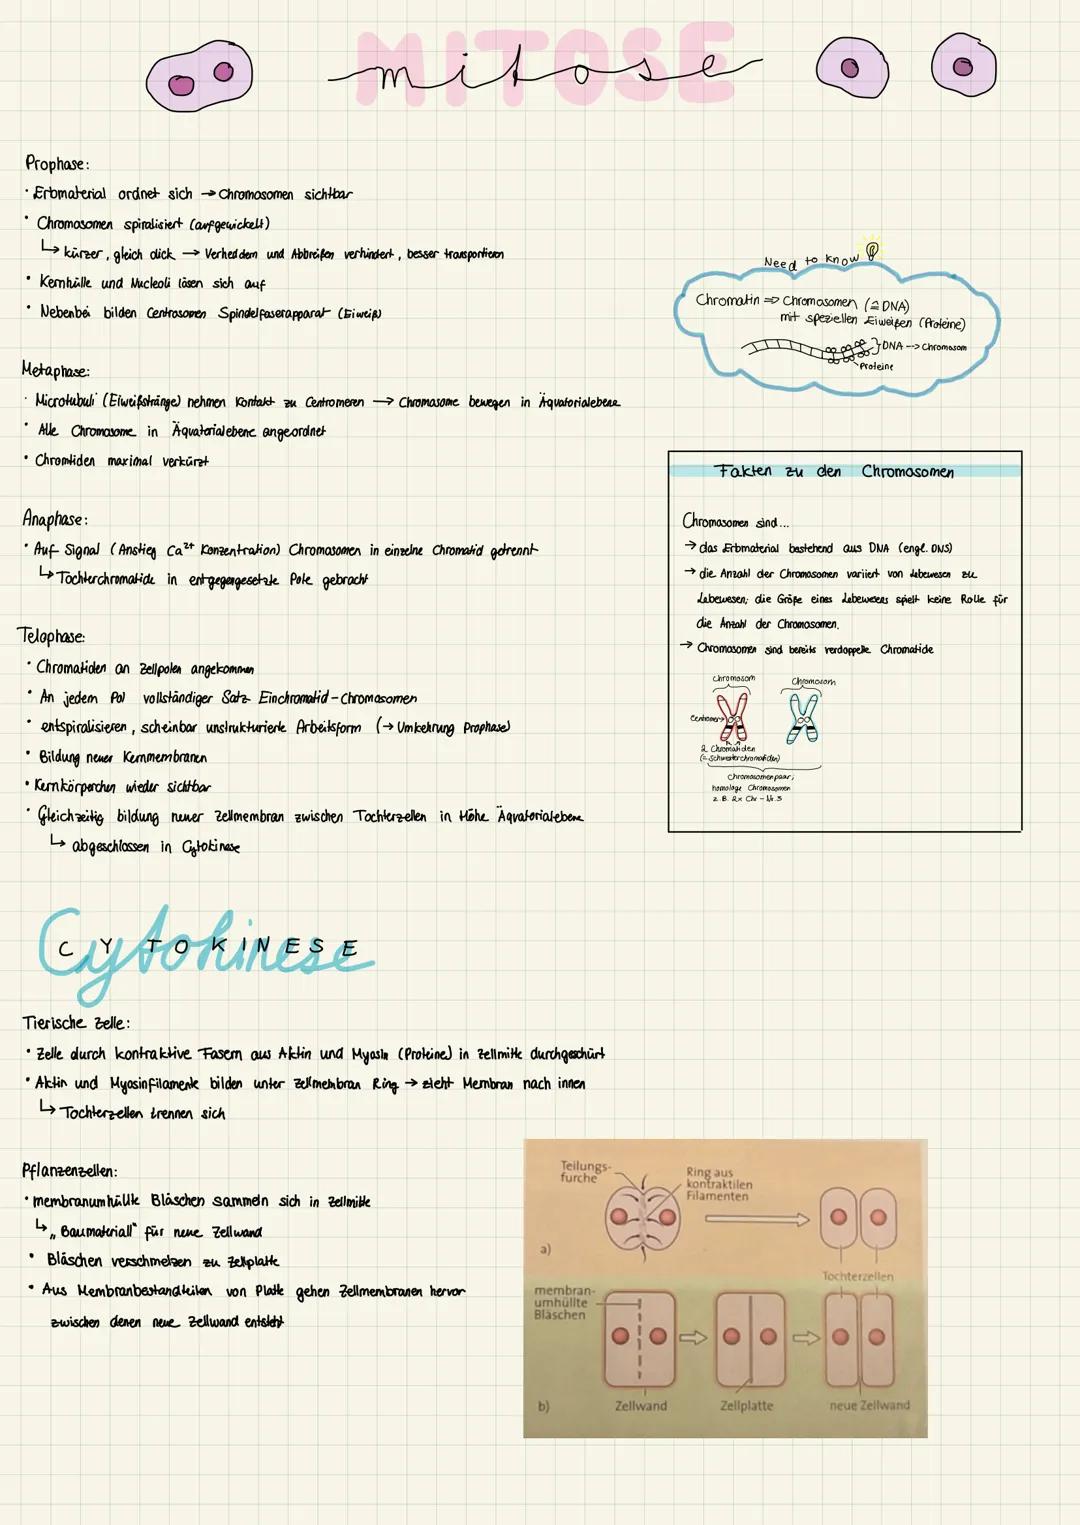 MITOSE
mitose
Prophase:
· Erbmaterial ordnet sich → Chromosomen sichtbar
· Chromosomen spiralisiert (aufgewickelt)
↳ kürzer, gleich dick → Verheddern und Abbreißen verhindert, besser transportieren
· Kernhülle und Nucleoli lösen sich auf
· Nebenbei bilden Centrosomen Spindelfaserapparat (Eiweiß)
Need to know
Chromatin ⇒ Chromosomen (≙ DNA)
mit speziellen Eiweißen (Proteine)
} DNA --> Chromosom
Proteine
Metaphase:
· Microtubuli (Eiweißstränge) nehmen Kontakt zu Centromeren → Chromosome bewegen in Äquatorialebene
· Alle Chromosome in Äquatorialebene angeordnet
· Chromtiden maximal verkürzt
Anaphase:
· Auf Signal (Anstieg Ca²⁺ Konzentration) Chromosomen in einzelne Chromatid getrennt
↳ Tochterchromatide in entgegengesetzte Pole gebracht
Telophase:
· Chromatiden an Zellpolen angekommen
· An jedem Pol vollständiger Satz Einchromatid-Chromosomen
· entspiralisieren, scheinbar unstrukturierte Arbeitsform (→ Umkehrung Prophase)
· Bildung neuer Kernmembranen
· Kernkörperchen wieder sichtbar
· Gleichzeitig bildung neuer Zellmembran zwischen Tochterzellen in Höhe Äquatorialebene
↳ abgeschlossen in Cytokinese
Fakten zu den Chromosomen
Chromosomen sind...
→ das Erbmaterial bestehend aus DNA (engl. DNS)
→ die Anzahl der Chromosomen variiert von Lebewesen zu
Lebewesen; die Größe eines Lebewesens spielt keine Rolle für
die Anzahl der Chromosomen.
→ Chromosomen sind bereits verdoppelte Chromatide
Chromosom
Chromosom
Centromer→
2 Chromatiden
(= Schwesterchromatiden)
Chromosomenpaar;
homologe Chromosomen
z.B. 2x Chr-Nr.3
Cytokinese
CYTOKINESE
Tierische Zelle:
· Zelle durch kontraktive Fasern aus Aktin und Myosin (Proteine) in Zellmitte durchgeschürt
· Aktin und Myosinfilamente bilden unter Zellmembran Ring → zieht Membran nach innen
↳ Tochterzellen trennen sich
Pflanzenzellen:
· membranumhüllte Bläschen sammeln sich in Zellmitte
↳ „Baumateriall" für neue Zellwand
· Bläschen verschmelzen zu Zellplatte
· Aus Membranbestandteilen von Platte gehen Zellmembranen hervor
zwischen denen neue Zellwand entsteht
Teilungs-
furche
Ring aus
kontraktilen
Filamenten
a)
Tochterzellen
membran-
umhüllte
Bläschen
b)
Zellwand
Zellplatte
neue Zellwand